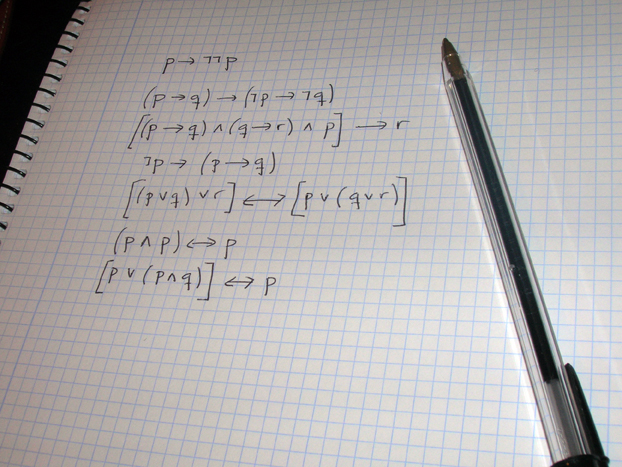 p → ¬¬p
(p → q) → (¬p → ¬q)
[(p → q) ∧ (q → r) ∧ p] → r
¬p → (p → q)
[(p ∨ q) ∨ r] ↔ [p ∨ (q ∨ r)]
(p ∧ p) ↔ p
[p ∨ (p ∧ q)] ↔ p